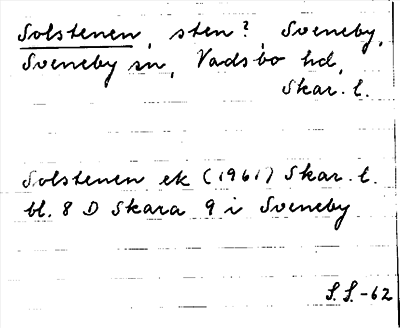 Solstenen, sten?, Sveneby,
Sveneby sn, Vadsbo hd,
Skar. l.
Solstenen ek (1961) Skar. l.
bl. 8 D Skara 9 i Sveneby
S.S.-62